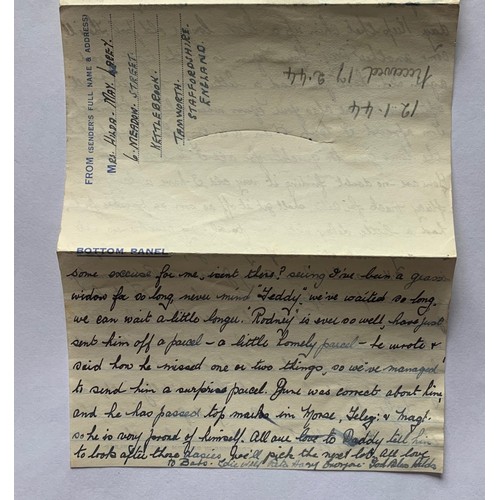 FROM (SENDER'S FULL NAME & ADDRESS)
Mrs HILDA. MAY.
6. MEADOW. STREET.
KETTLEBROOK.
TAMWORTH.
STAFFORDSHIRE.
ENGLAND.
12.1.44
Received 19.2.44
BOTTOM PANEL
some excuse for me, isent there? seeing I've been a grass
widow for so long, never mind "Teddy", we've waited so long,
we can wait a little longer. "Rodney" is ever so well, have just
sent him off a parcel - a little "lonely parcel" - he wrote &
said how he missed one or two things, so we've managed
to send him a surprise parcel. Yure was correct about him,
and he has passed top marks in Morse, Teleg: & Mag:.
so he is very proud of himself. All our love to Daddy tell him
to look after those daisies, we'll pick the next lot. All love
to Babs.